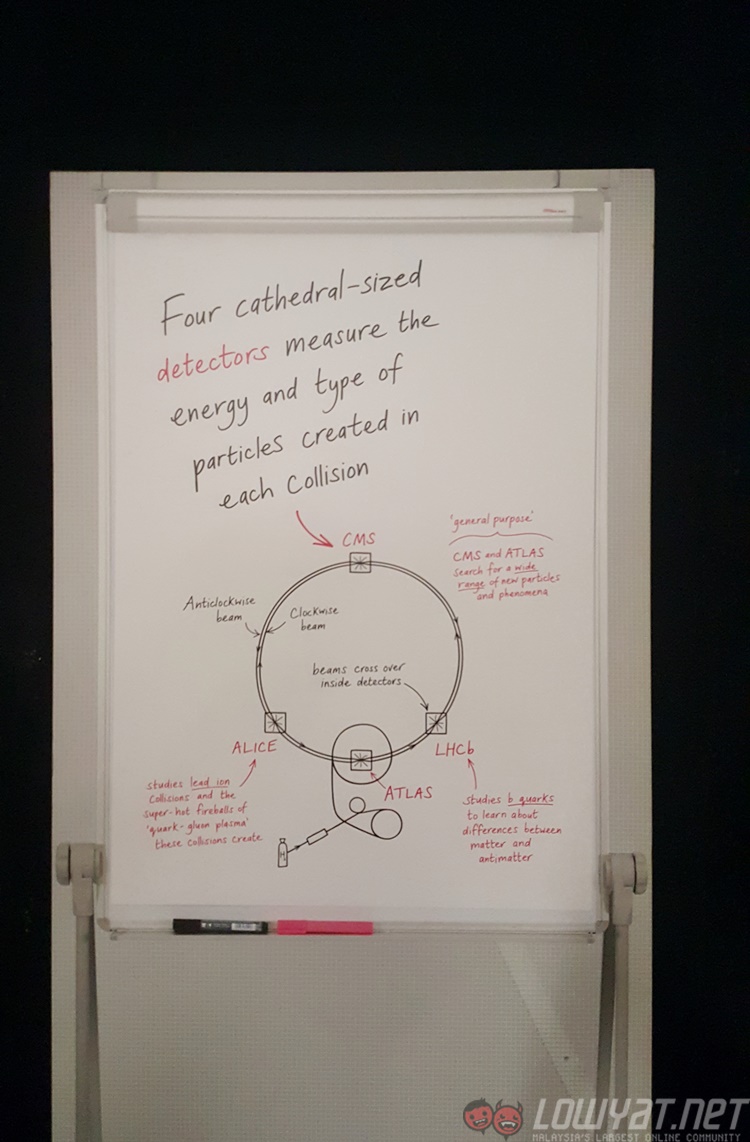 Four cathedral-sized
detectors measure the
energy and type of
particles created in
each Collision
CMS
'general purpose'
CMS and ATLAS
search for a wide
range of new particles
and phenomena
Anticlockwise
beam
Clockwise
beam
beams cross over
inside detectors
ALICE
LHCb
ATLAS
studies lead ion
Collisions and the
super-hot fireballs of
'quark-gluon plasma'
these collisions create
Studies b quarks
to learn about
differences between
matter and
antimatter
H
LOWYAT.NET
MALAYSIA'S LARGEST ONLINE COMMUNITY